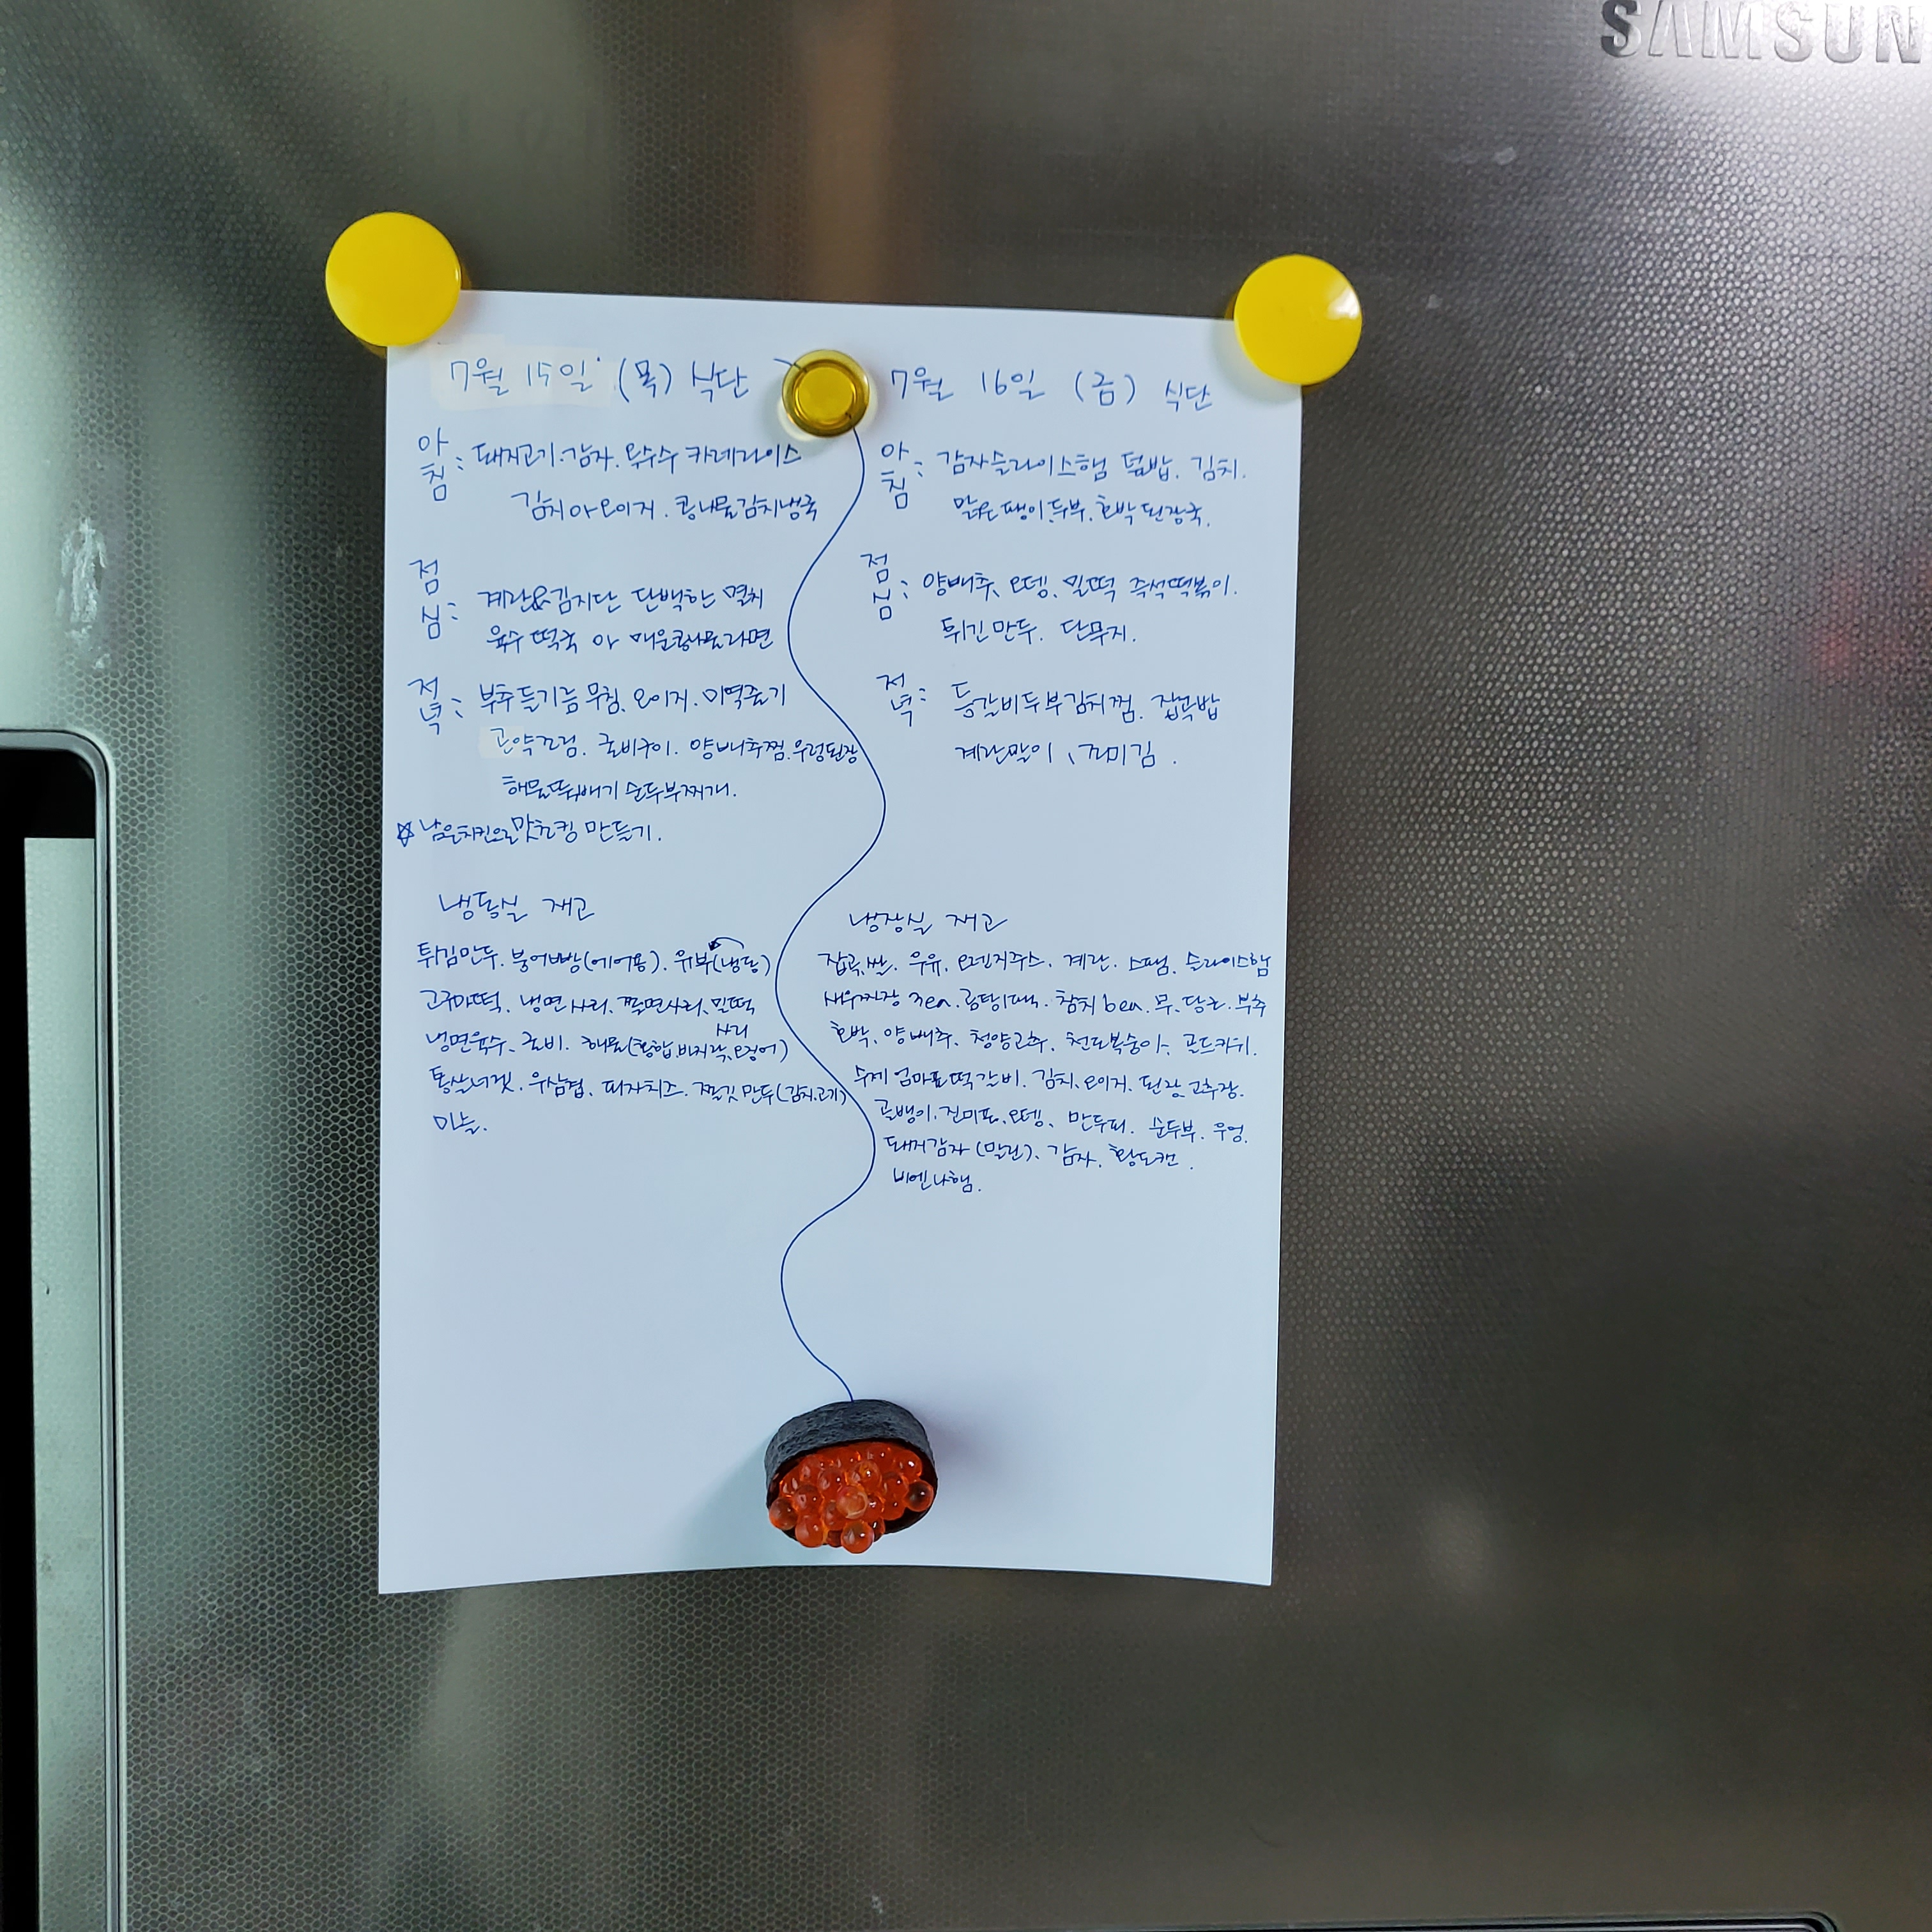 SAMSUN
7월 15일 (목) 식단
아침: 돼지고기.감자.옥수수 카레라이스
김치 아 오이지. 콩나물김치냉국
점심: 계란&김지단 단백한 멸치
육수 떡국 아 매운해물라면
저녁: 부추들기름무침. 오이지. 미역줄기
곤약조림. 굴비구이. 양배추찜.우렁된장
해물뚝배기 순두부찌개.
☆ 남은치킨으로 맛초킹 만들기.
7월 16일 (금) 식단
아침: 감자슬라이스햄 덮밥. 김치.
맑은팽이.두부.호박된장국.
점심: 양배추, 오뎅, 밀떡 즉석떡볶이.
튀긴만두. 단무지.
저녁: 등갈비두부김치찜. 잡곡밥
계란말이, 꼬미김.
냉동실 재고
튀김만두. 붕어빵(에어용). 유부(냉동)
고구마떡. 냉면사리. 쫄면사리. 밀떡
사리
냉면육수. 굴비. 해물(홍합.바지락.오징어)
통살너겟. 우삼겹. 피자치즈. 만두(김치.고기)
마늘.
냉장실 재고
잡곡.쌀. 우유. 오렌지주스. 계란. 스팸. 슬라이스햄
새우 3ea. 곰탕1팩. 참치 6ea. 무. 당근. 부추
호박. 양배추. 청양고추. 천도복숭아. 골드키위.
수제 엄마표떡갈비. 김치. 오이지. 된장 고추장.
골뱅이. 진미포. 오뎅. 만두피. 순두부. 우엉.
돼지감자(말린). 감자. 황도캔.
비엔나햄.